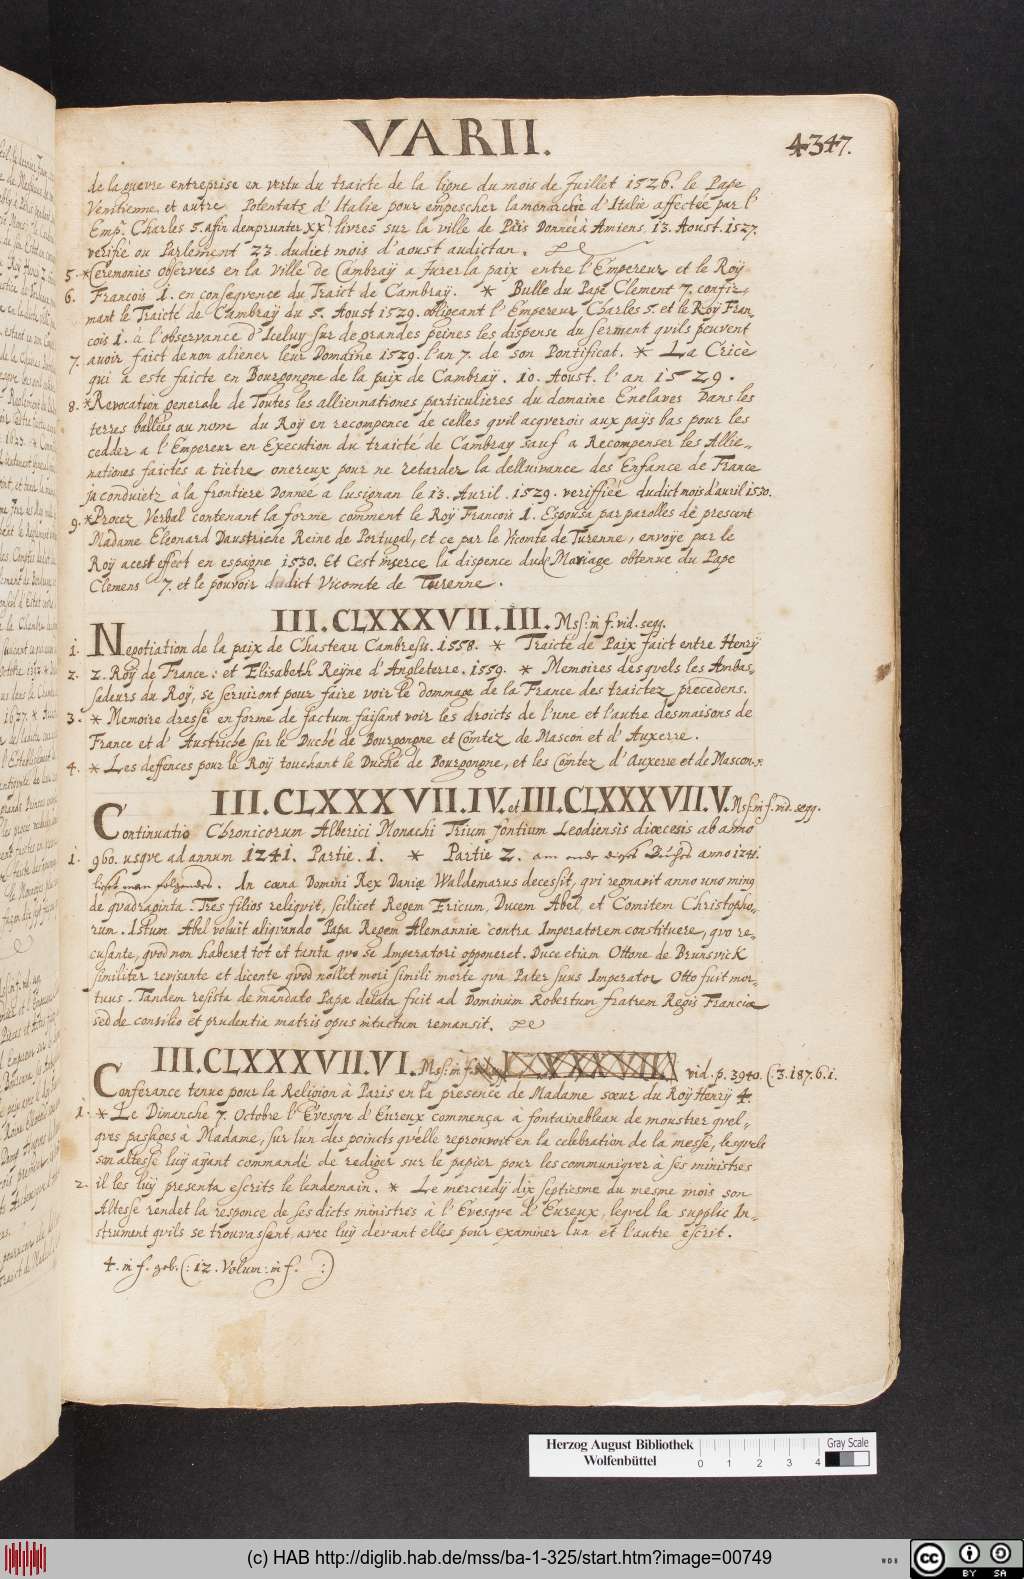 VARII.
4347.
de la guerre entreprise en vertu du traicte de la ligne du mois de Juillet 1526. le Pape
Venitienne et autre Potentatz d'Italie pour empescher la monarchie d'Italie affectée par l'
Emp. Charles 5. afin demprunter XX livres sur la ville de Paris Donnée à Amiens 13. Aoust. 1527.
verifié ou Parlement 23. dudiet mois d'aoust audictan.
5. *Ceremonies observees en la Ville de Cambraÿ a Jurer la paix entre l'Empereur et le Roÿ
6. Francois 1. en conseqvence du Traict de Cambraÿ. * Bulle du Pape Clement 7. confir-
mant le Traicté de Cambraÿ du 5. Aoust 1529. obligeant l'Empereur Charles 5. et le Roÿ Fran-
cois 1. à l'observance d'Iceluy sur de grandes peines les dispense du serment qvils peuvent
7. avoir faict de non aliener leur Domaine 1529. l'an 7. de son Pontificat. * La Cricè
qui a este faicte en Bourgongne de la paix de Cambraÿ. 10. Aoust. l'an 1529.
8. *Revocation generale de Toutes les alliennationes particulieres du domaine Enclaves Dans les
terres ballèis au nom du Roÿ en recompence de celles qvil acqverois aux païs bas pour les
cedder a l'Empereur en Execution du traicté de Cambray sauf a Recompenser les Allie-
nationes faictes a tietre onereux pour ne retarder la delluivance des Enfance de France
ja conduietz à la frontiere Donnee a lusignan le 13. Auril. 1529. veriffieé dudict mois d'auril 1530.
9. *Procez Verbal contenant la forme comment le Roÿ Francois 1. Espousa par parolles de present
Madame Eleonard Daustriche Reine de Portugal, et ce par le Vicomte de Turenne, envoye par le
Roÿ acest effect en espagne 1530. Et Cest inserce la dispence dude Mariage obtenue du Pape
Clemens 7. et le pouvoir dudict Vicomte de Turenne.
III.CLXXXVII.III. Mss: in f. vid. seqq.
1. Negotiation de la paix de Chasteau Cambresis. 1558. * Traicté de Paix faict entre Henrÿ
2. 2. Roÿ de France: et Elisabeth Reÿne d'Angleterre. 1559. * Memoires desqvels les Ambas-
sadeurs du Roÿ, se serviront pour faire voir le dommage de la France des traictez precedens.
3. * Memoire dressé en forme de factum faisant voir les droicts de l'une et l'autre des maisons de
France et d'Austriche sur le Duché de Bourgongne et Comtez de Mascon et d'Auxerre.
4. * Les deffences pour le Roÿ touchant le Duché de Bourgongne, et les Comtez d'Auxerre et de Mascon.
III.CLXXXVII.IV. et III.CLXXXVII.V. Mss: in f. vid. seqq.
Continuatio Chronicorum Alberici Monachi Trium fontium Leodiensis diœcesis ab anno
1. 960. usqve ad annum 1241. Partie. 1. * Partie 2. am ende dieses Buches anno 1241.
lieset man folgendes. In cœna Domini Rex Daniæ Waldemarus decessit, qvi regnavit anno uno minq
de qvadraginta. Tres filios reliqvit, scilicet Regem Ericum, Ducem Abel et Comitem Christopho-
rum. Istum Abel voluit aliqvando Papa Regem Alemanniæ contra Imperatorem constituere, qvo re-
cusante, qvod non haberet tot et tanta qvo se Imperatori opponeret. Duce etiam Ottone de Brunsvick
similiter revisante et dicente qvod nollet mori simili morte qva Pater suus Imperator Otto fuit mor-
tuus. Tandem resista de mandato Papæ delata fuit ad Dominum Robertum fratrem Regis Franciæ
sed de consilio et prudentia matris opus intactum remansit.
III.CLXXXVII.VI. Mss: in f. vid. p. 3940. (:3.187.6.1.
Conferance tenue pour la Religion a Paris en la presence de Madame sœur du Roÿ Henrÿ 4.
1. * Le Dimanche 7. Octobre l'Evesqve d'Eureux commença à fontainebleau de monstrer qvel-
qves passages à Madame, sur lun des poincts qvelle reprouvoit en la celebration de la messe, lesqvels
son altesse luÿ aÿant commandé de rediger sur le papier pour les communiqver à ses ministres
2. il les luÿ presenta escrits le lendemain. * Le mercredÿ dix septiesme du mesme mois son
Altesse rendet la responce de ses dicts ministres à l'Evesqve d'Eureux, leqvel la supplic In-
strument qvils se trouvassent avec luÿ devant elles pour examiner lun et l'autre escrit.
4. in f. geb. (:12. Volum: in f. :)
Herzog August Bibliothek
Wolfenbüttel
0 1 2 3 4
Gray Scale
(c) HAB http://diglib.hab.de/mss/ba-1-325/start.htm?image=00749
WDB
cc BY SA